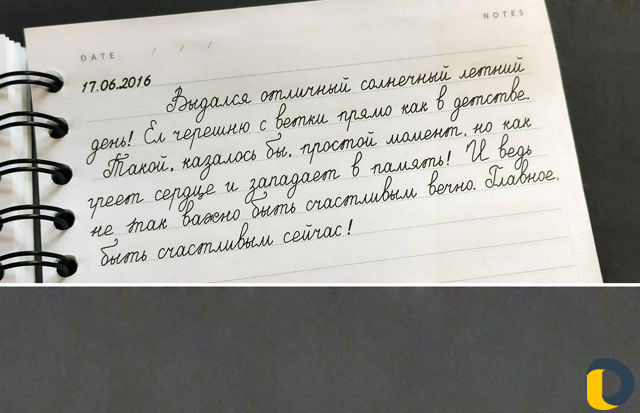 NOTES
DATE / / /
17.06.2016
Выдался отличный солнечный летний
день! Ел черешню с ветки прямо как в детстве.
Такой, казалось бы, простой момент, но как
греет сердце и западает в память! И ведь
не так важно быть счастливым вечно. Главное,
быть счастливым сейчас!